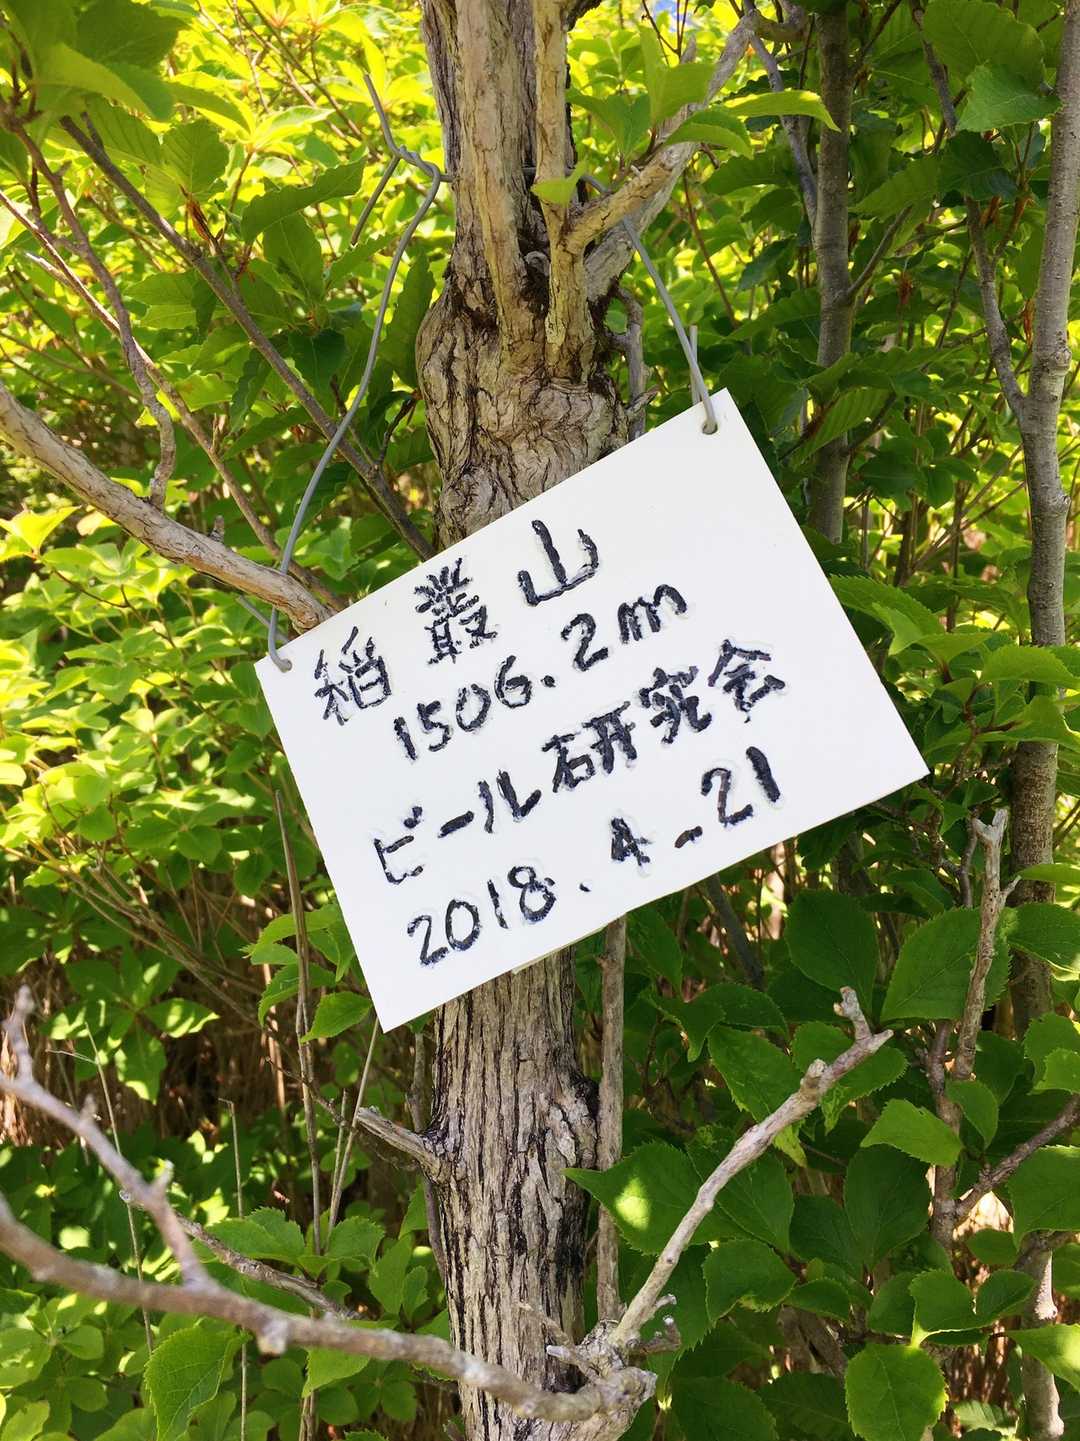 稲叢山
1506.2m
ビール石研究会
2018.4.21